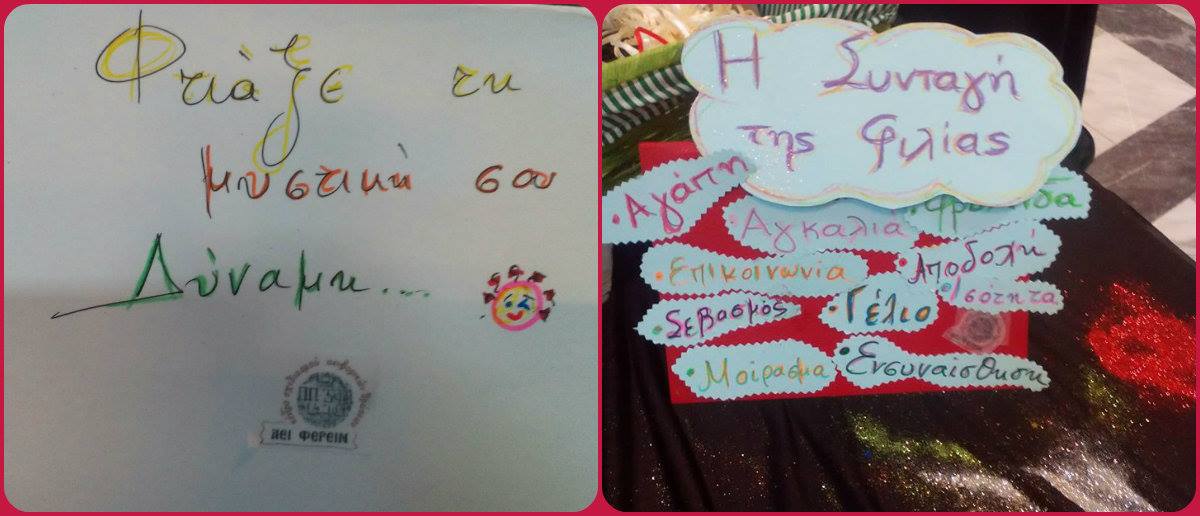 Φτιάξε τη
μυστική σου
Δύναμη...
ΑΕΙ ΦΕΡΕΙΝ
Η Συνταγή
της Φιλίας
• Αγάπη
• Αγκαλιά
• Επικοινωνία
• Αποδοχή
• Ισότητα
• Σεβασμός
• Γέλιο
• Μοίρασμα
• Ενσυναίσθηση